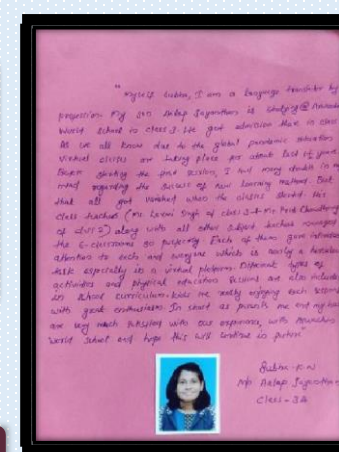 "Myself Subha, I am a language translator by
profession. My son Aalap Sajeevthan is studying @
World School in class 3. He got admission there in class
As we all know due to the global pandemic situation
Virtual classes are taking place for about last 1½ years.
Before starting the session, I had many doubts in my
mind regarding the success of new learning method. But
that all got vanished when the classes started. His
class teachers (Ms Laxmi Singh of class 3 & Ms
of class 2) along with all other subject teachers managed
the E-classrooms so perfectly. Each of them gave
attention to each and everyone which is really a
talk especially in a virtual platform. Different types of
activities and physical education are also included
in school curriculum. Kids are really enjoying each session
with great enthusiasm. In short as parents me and my
are very much satisfied with our experience, with
World School and hope this will continue in future"
Subha.K.N
M/o Aalap
Class - 3A